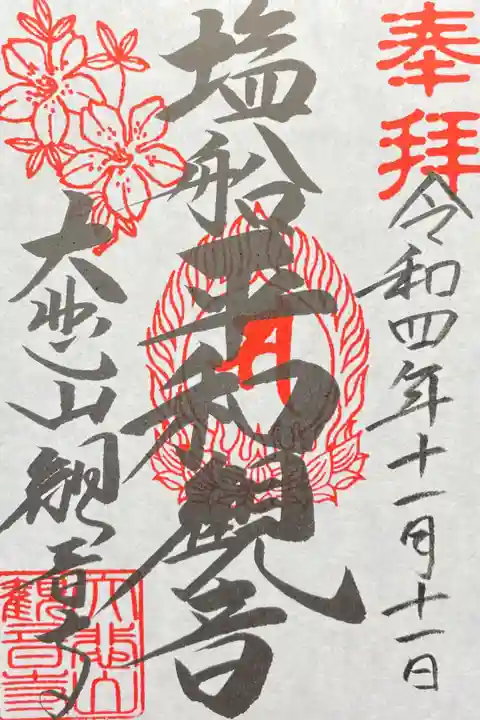 奉拝
令和四年十一月十一日
塩船平和観音
大悲山観音寺
大悲山
観音寺